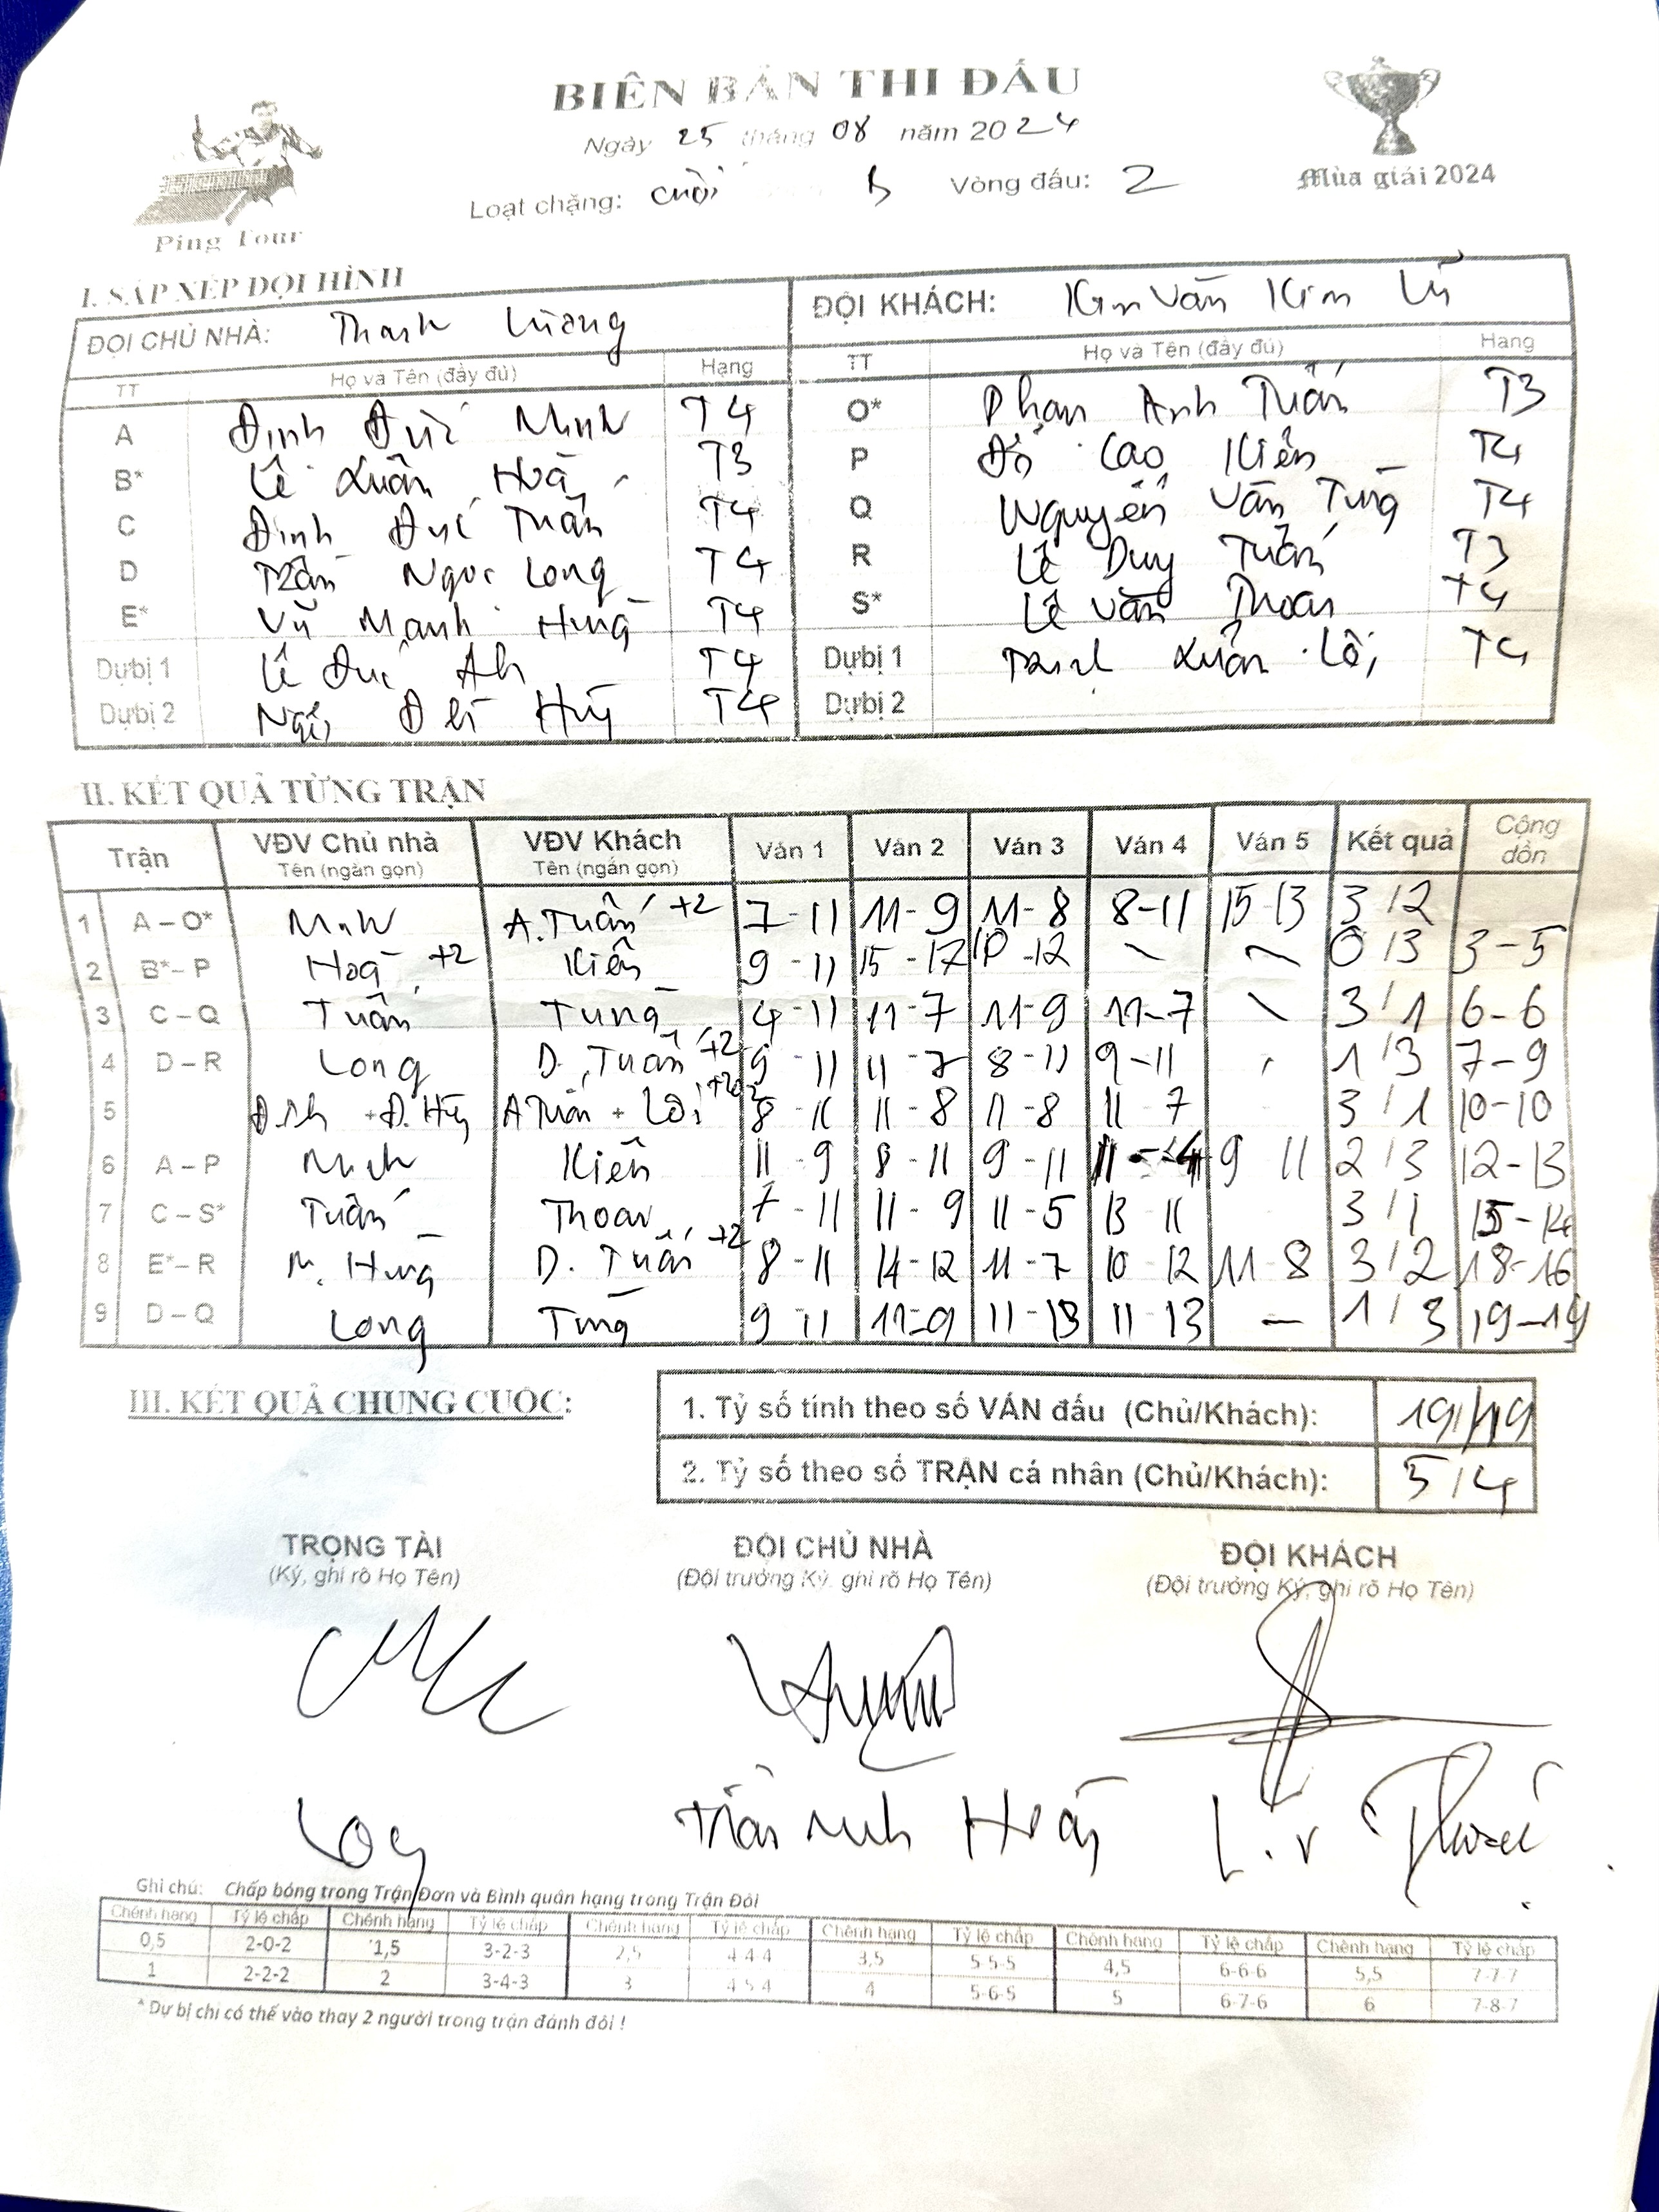 BIÊN BẢN THI ĐẤU
Ngày 25 tháng 08 năm 2024
Loạt chặng: cuối B Vòng đấu: 2
Ping Tour
Mùa giải 2024
I. SẮP XẾP ĐỘI HÌNH
ĐỘI CHỦ NHÀ: Thanh Lương ĐỘI KHÁCH: Văn Kim Lũ
TT Họ và Tên (đầy đủ) Hạng TT Họ và Tên (đầy đủ) Hạng
A Đinh Đức Minh T4 O* Phan Anh Tuấn T3
B* Lê Xuân Hoà T3 P Đỗ Cao Kiên T4
C Đinh Đức Tuấn T4 Q Nguyễn Văn Tùng T4
D Trần Ngọc Long T4 R Lê Duy Tuấn T3
E* Vũ Mạnh Hùng T4 S* Lê Văn Thoan T4
Dự bị 1 Lê Đức T4 Dự bị 1 Trịnh Xuân Lôi T4
Dự bị 2 Huy T4 Dự bị 2
II. KẾT QUẢ TỪNG TRẬN
Trận VĐV Chủ nhà Tên (ngắn gọn) VĐV Khách Tên (ngắn gọn) Ván 1 Ván 2 Ván 3 Ván 4 Ván 5 Kết quả Cộng dồn
1 A – O* Minh A. Tuấn +2 7-11 11-9 11-8 8-11 15-13 3/2
2 B* – P Hoà +2 Kiên 9-11 15-17 10-12 0/3 3-5
3 C – Q Tuấn Tùng 4-11 11-7 11-9 11-7 3/1 6-6
4 D – R Long D. Tuấn +2 9-11 11-7 8-11 9-11 1/3 7-9
5 A Tuấn + Lôi 8-11 11-8 11-8 11-7 3/1 10-10
6 A – P Minh Kiên 11-9 8-11 9-11 11-4 9 11 2/3 12-13
7 C – S* Tuấn Thoan 7-11 11-9 11-5 13 11 3/1 15-14
8 E* – R M. Hùng D. Tuấn +2 8-11 14-12 11-7 10-12 11-8 3/2 18-16
9 D – Q Long Tùng 9-11 11-9 11-13 11-13 – 1/3 19-19
III. KẾT QUẢ CHUNG CUỘC:
1. Tỷ số tính theo số VÁN đấu (Chủ/Khách): 19/19
2. Tỷ số theo số TRẬN cá nhân (Chủ/Khách): 5/4
TRỌNG TÀI ĐỘI CHỦ NHÀ ĐỘI KHÁCH
(Ký, ghi rõ Họ Tên) (Đội trưởng Ký, ghi rõ Họ Tên) (Đội trưởng Ký, ghi rõ Họ Tên)
Long Trần Minh Hoàng L.V Thoan
Ghi chú: Chấp bóng trong Trận Đơn và Bình quân hạng trong Trận Đôi
Chênh hạng Tỷ lệ chấp Chênh hạng Tỷ lệ chấp Chênh hạng Tỷ lệ chấp Chênh hạng Tỷ lệ chấp Chênh hạng Tỷ lệ chấp Chênh hạng Tỷ lệ chấp
0,5 2-0-2 1,5 3-2-3 2,5 4-4-4 3,5 5-5-5 4,5 6-6-6 5,5 7-7-7
1 2-2-2 2 3-4-3 3 4-5-4 4 5-6-5 5 6-7-6 6 7-8-7
* Dự bị chỉ có thể vào thay 2 người trong trận đánh đôi !